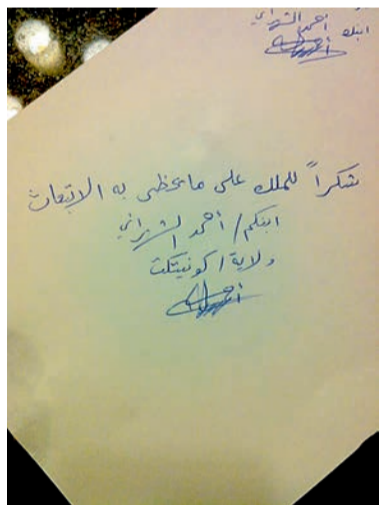 أحمد الشهراني
ابنك
شكراً للملك على ما يحظى به الابتعاث
ابنكم / أحمد الشهراني
ولاية / كونيتكت